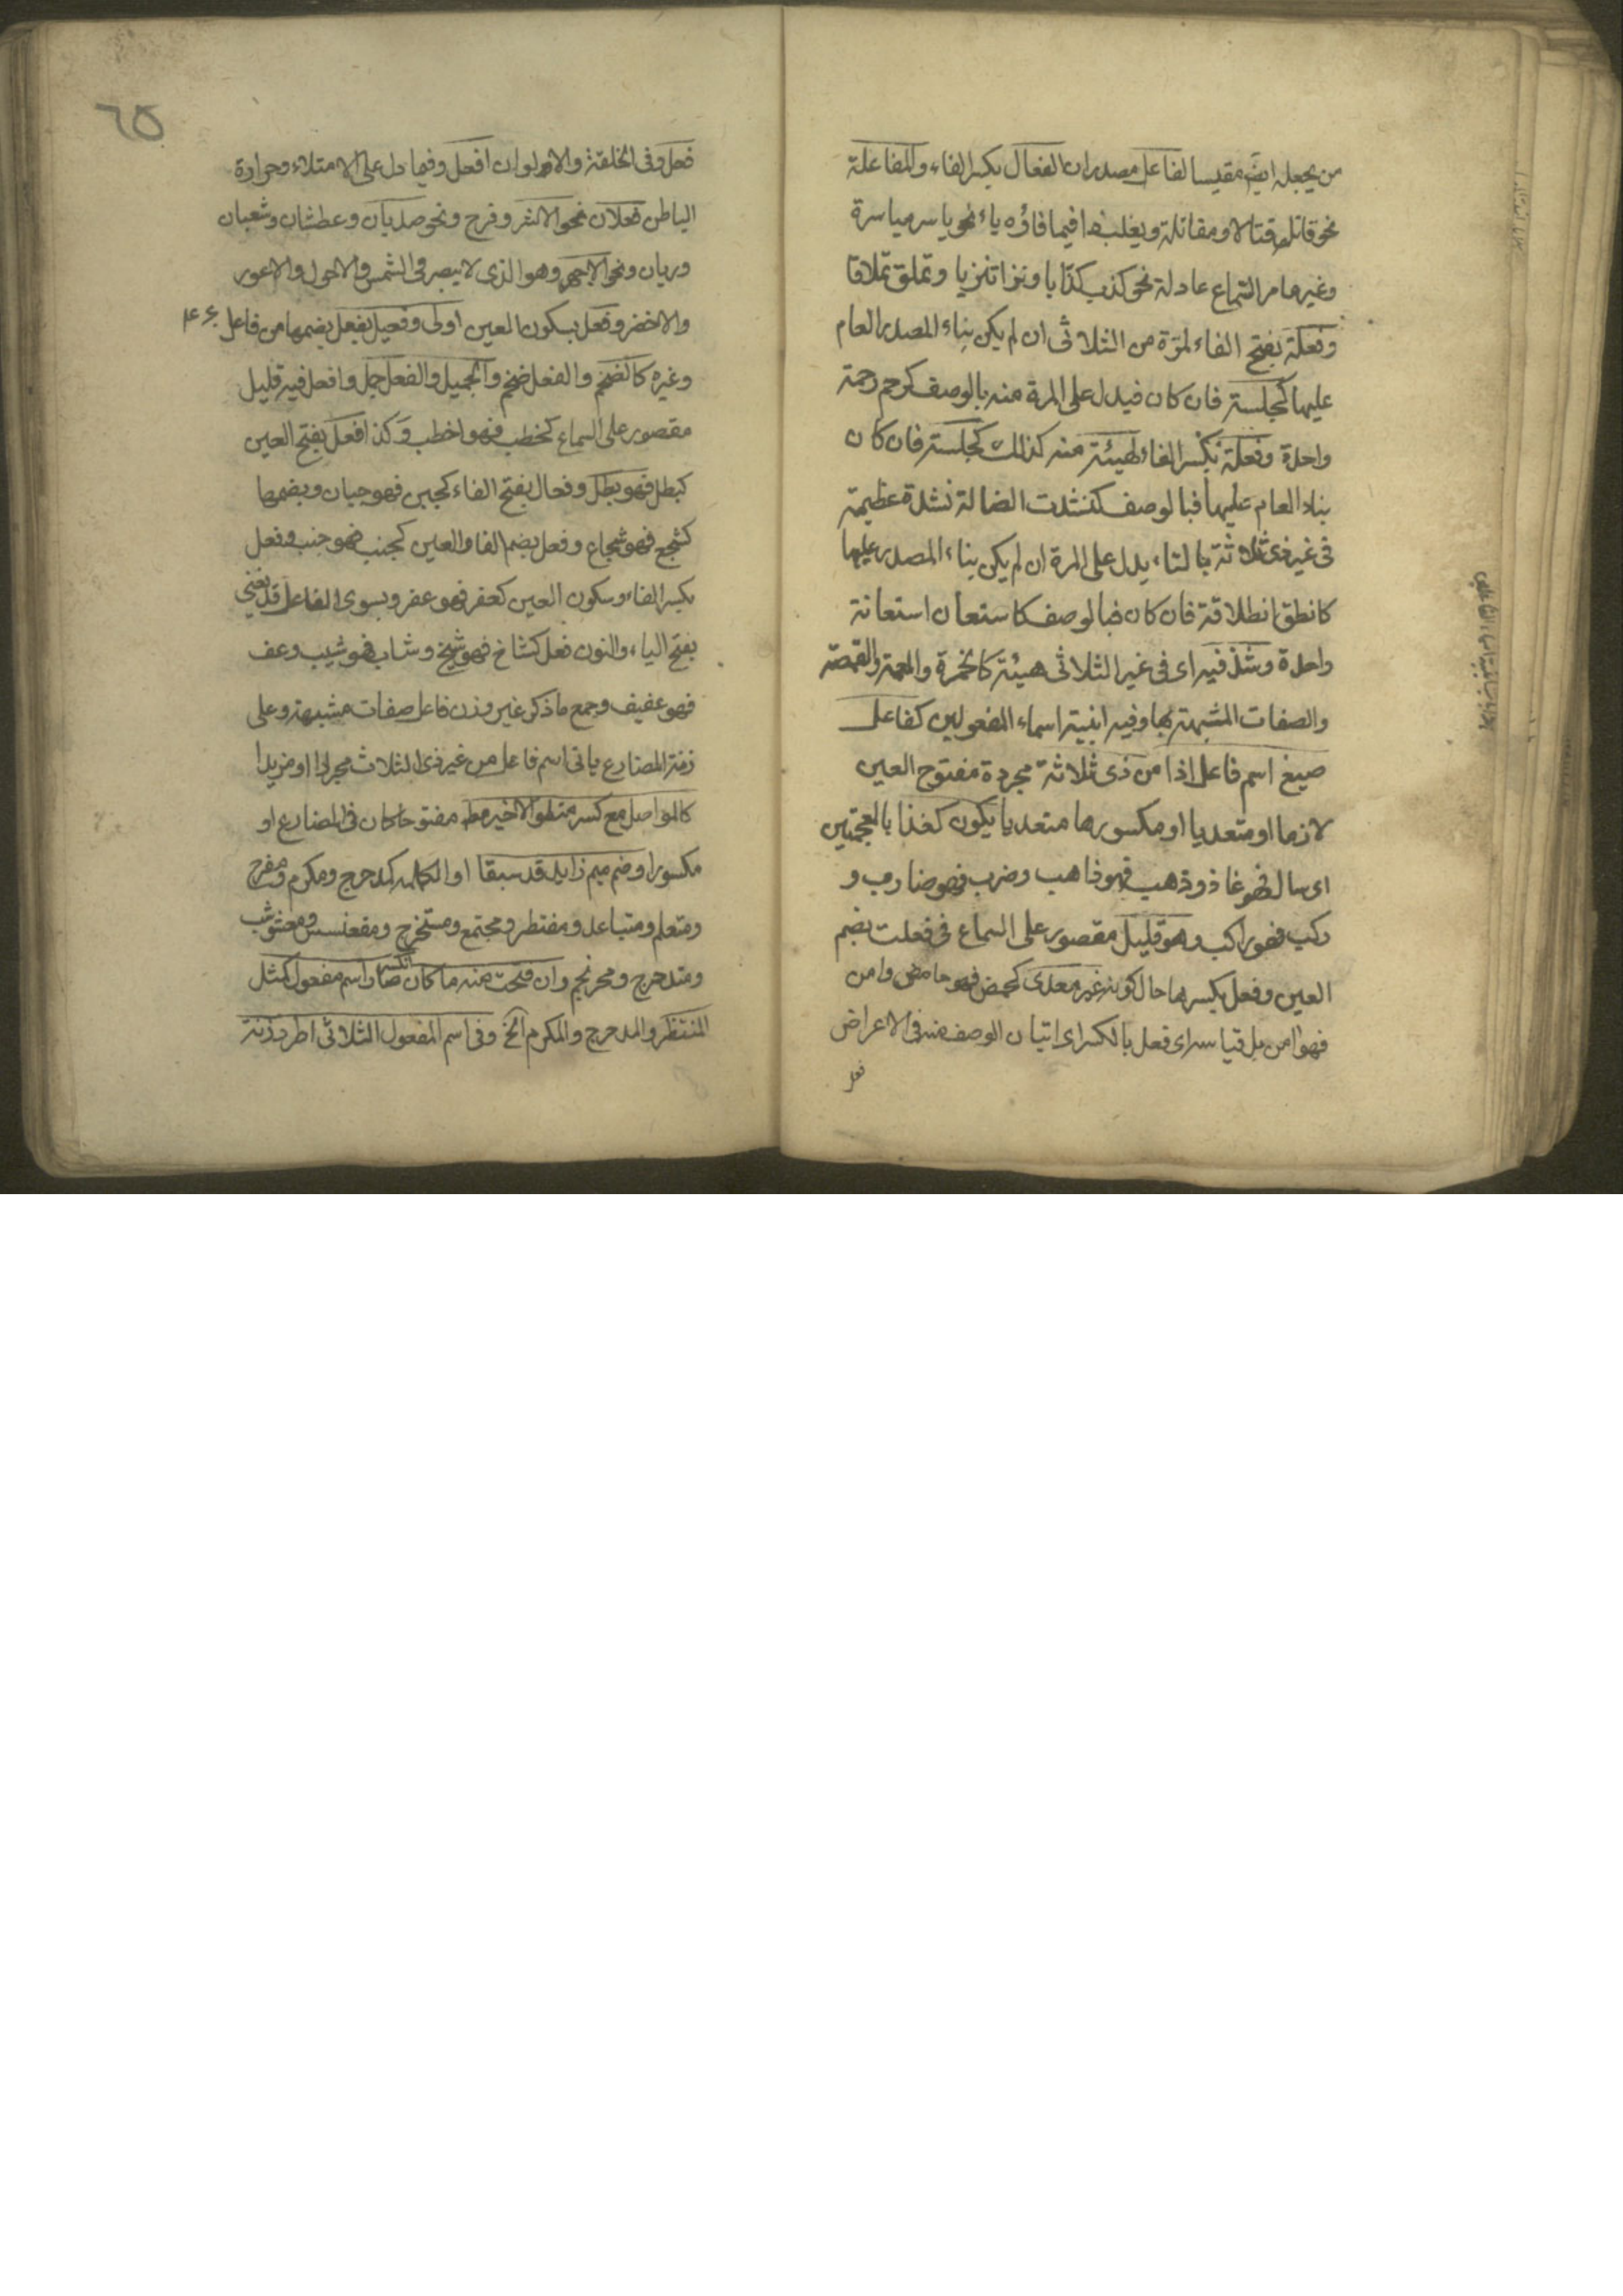 من يجعله ايض مقيسا لفاعل مصدران الفعال بكسر الفاء والمفاعلة
نحو قاتل قتالا ومقاتلة ويغلب هذا فيما فاؤه ياء نحو ياسر مياسرة
وغير ما مر السماع عادله نحو كذب كذابا ونزا تنزيا وتملق تملاقا
وفعلة بفتح الفاء لمرة من الثلاثى ان لم يكن بناء المصدر العام
عليها كجلسة فان كان فيدل على المرة منه بالوصف كرحم رحمة
واحدة وفعلة بكسر الفاء لهيئة منه كذلك كجلسة فان كان
بناء العام عليها فبالوصف كنشدت الضالة نشدة عظيمة
فى غير ذى ثلاثة بالتاء يدل على المرة ان لم يكن بناء المصدر عليها
كانطق انطلاقة فان كان فبالوصف كاستعان استعانة
واحدة وشذ فيه اى فى غير الثلاثى هيئة كالخمرة والعمة والقمصة
والصفات المشبهة بها وفيه ابنية اسماء المفعولين كفاعل
صيغ اسم فاعل اذا من ذى ثلاثة مجردة مفتوح العين
لازما او متعديا او مكسورها متعديا يكون كغذا بالمعجمتين
اى سال فهو غاذ وذهب فهو ذاهب وضرب فهو ضارب و
ركب فهو راكب وهو قليل مقصور على السماع فى فعلت بضم
العين وفعل بكسرها حال كونه غير معدى كحمض فهو حامض وامن
فهو امن بل قياسه اى فعل بالكسر اى اتيان الوصف منه فى الاعراض
فعل
٦٥
فعل وفى الخلقة والالوان افعل وفيما دل على الامتلاء وحرارة
الباطن فعلان نحو الاشر وفرح ونحو صديان وعطشان وشعبان
وريان ونحو الاجهر وهو الذى لا يبصر فى الشمس والاحول والاعور
والاخضر وفعل بسكون العين اولى وفعيل بفعل بضمها من فاعل
وغيره كالضخم والفعل ضخم والجميل والفعل جمل وافعل فيه قليل
مقصور على السماع كخطب فهو اخطب وكذا فعل بفتح العين
كبطل فهو بطل وفعال بفتح الفاء كجبن فهو جبان وبضمها
كشجع فهو شجاع وفعل بضم الفا والعين كجنب فهو جنب وفعل
بكسر الفاء وسكون العين كعفر فهو عفر وبسوى الفاعل قد يغنى
بفتح الياء والنون فعل كشاخ فهو شيخ وشاب فهو شيب وعف
فهو عفيف وجمع ما ذكر غير وزن فاعل صفات مشبهة وعلى
زنة المضارع ياتى اسم فاعل من غير ذى الثلاث مجردا او مزيدا
كالمواصل مع كسر متلو الاخير مط مفتوحا كان فى المضارع او
مكسورا وضم ميم زايد قد سبقا اول الكلمة كمدحرج ومكرم ومفرح
ومتعلم ومتباعد ومنتظر ومجتمع ومستخرج ومقعنسس ومعشوشب
ومتدحرج ومحرنجم وان فتحت منه ما كان انكسر صار اسم مفعول كمثل
المنتظر والمدحرج والمكرم الخ وفى اسم المفعول الثلاثى اطرد زنة